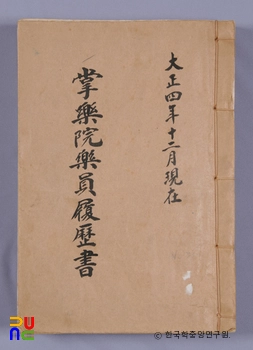 大正四年十二月現在
掌樂院樂員履歷書
© 한국학중앙연구원